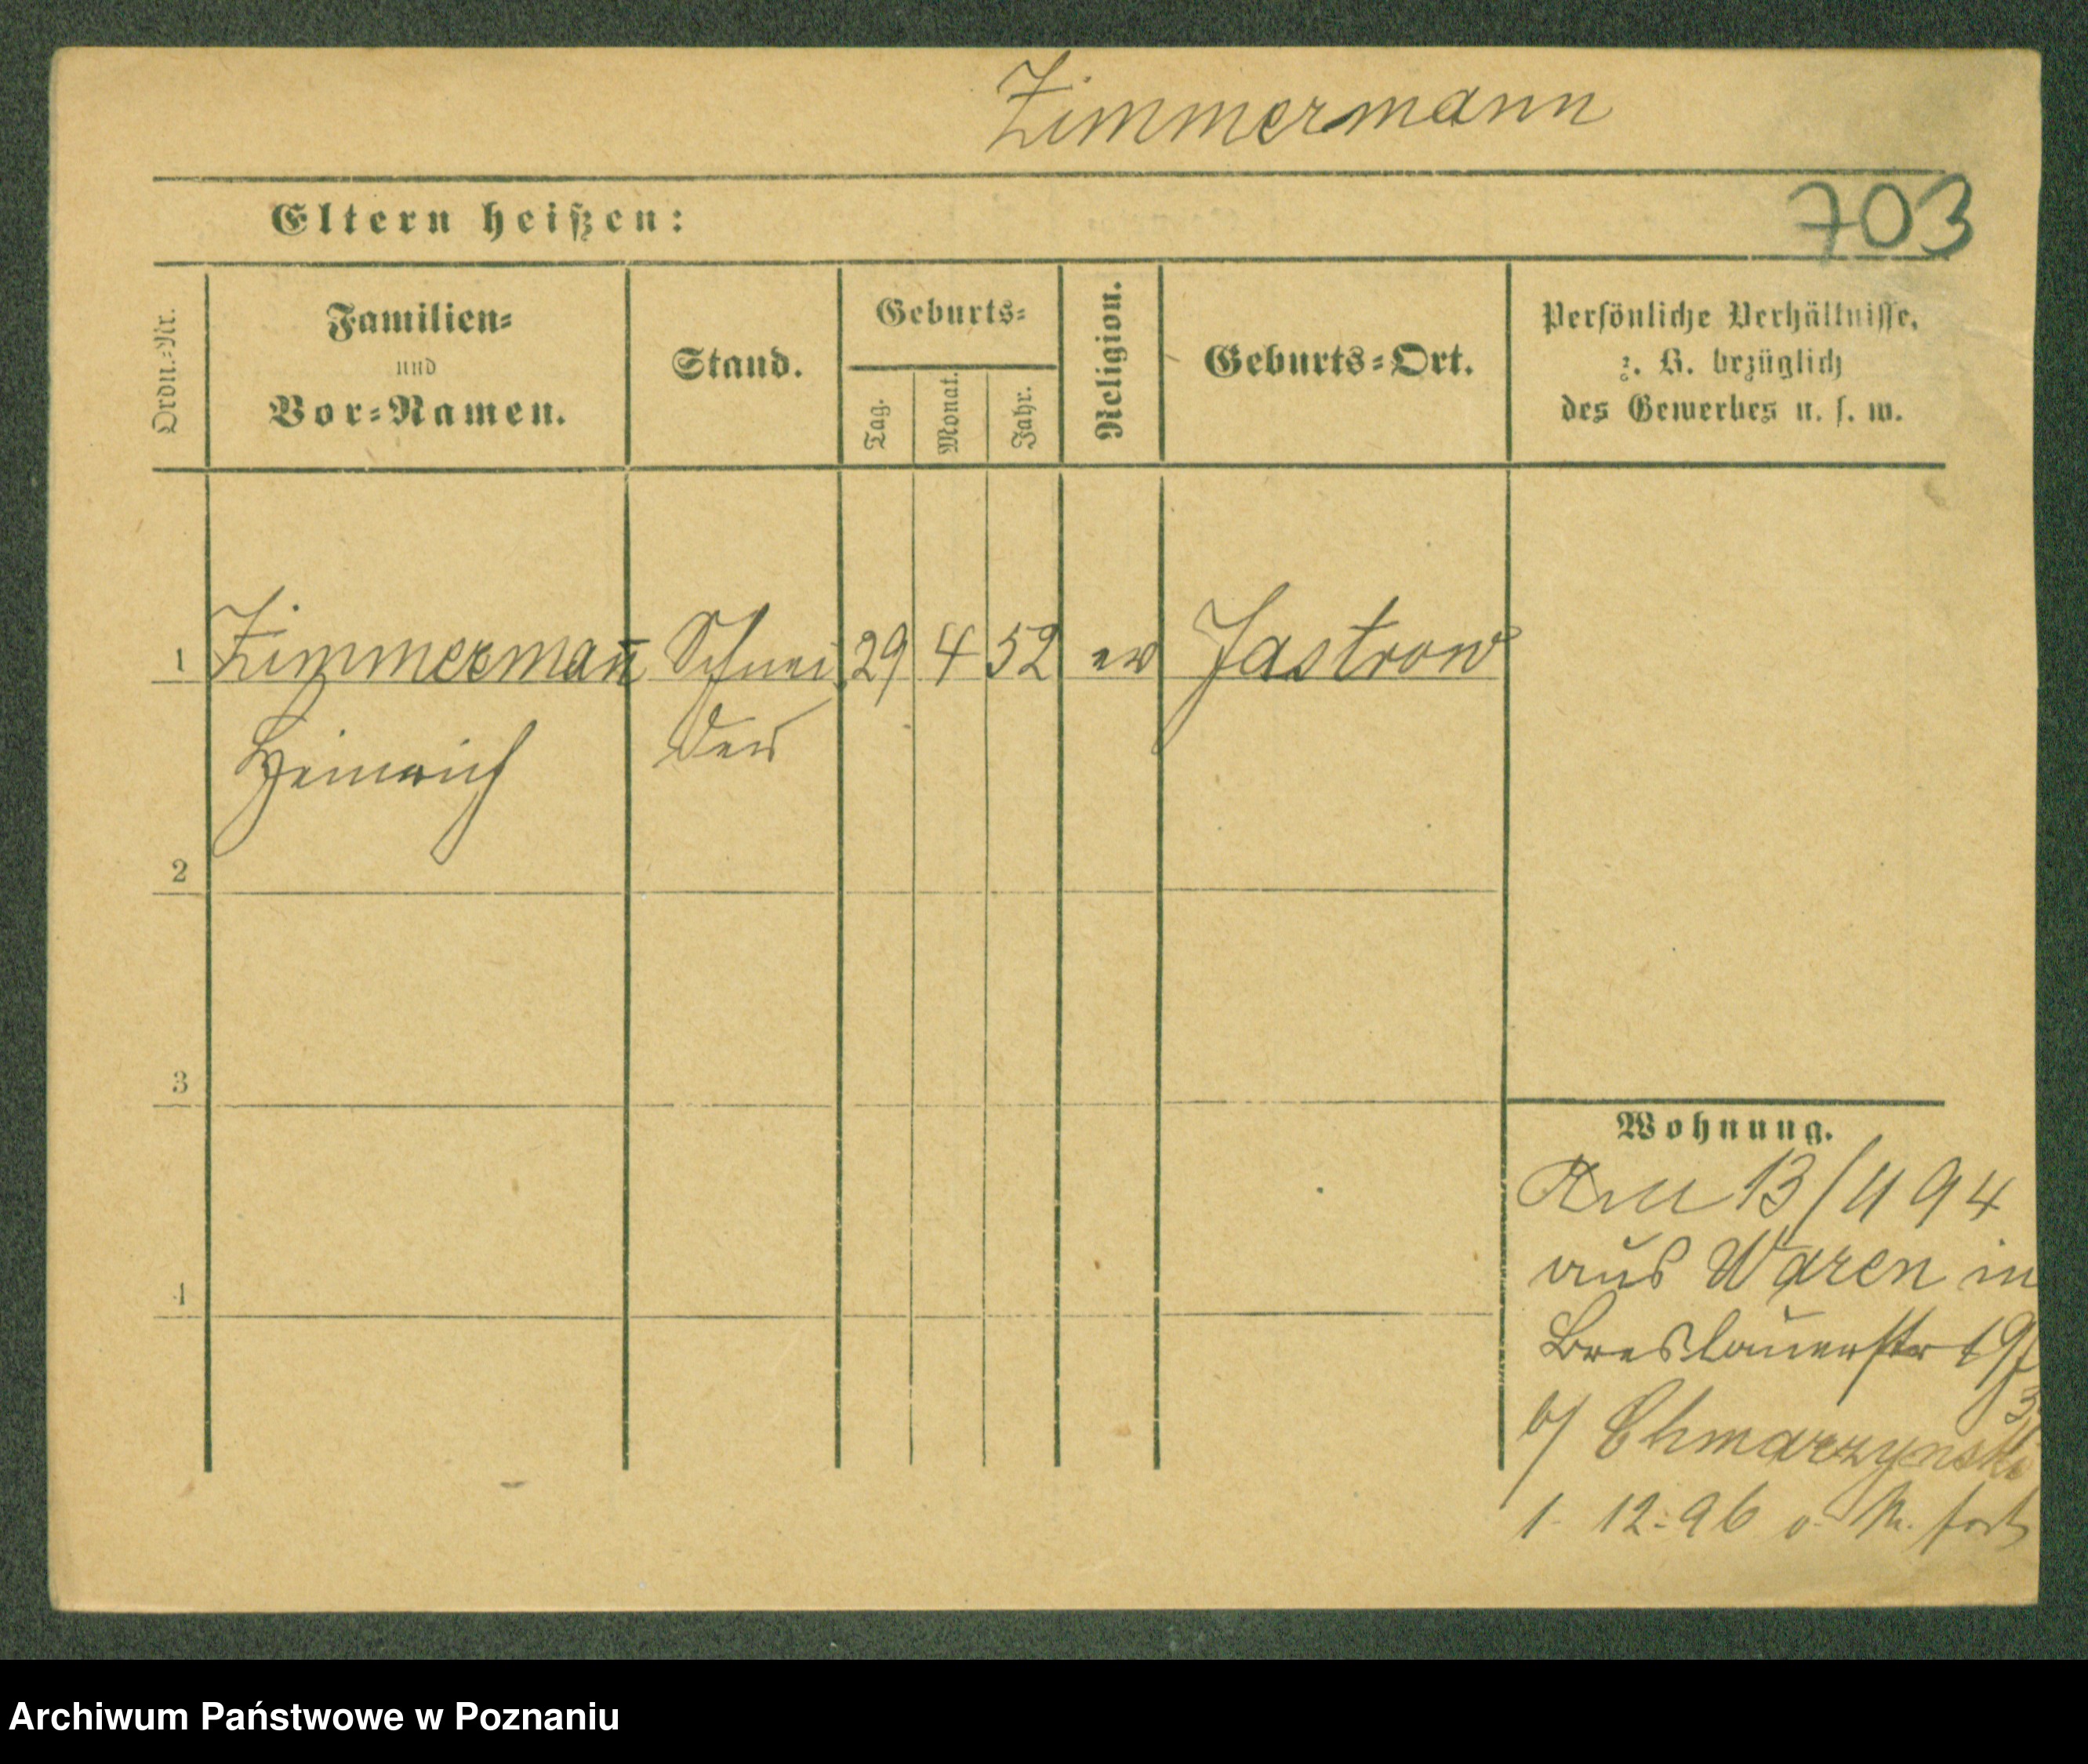 Zimmermann
703
Eltern heißen:
Ordn.-Nr.
Familien-
und
Vor-Namen.
Stand.
Geburts-
Tag.
Monat.
Jahr.
Religion.
Geburts-Ort.
Persönliche Verhältnisse,
z. B. bezüglich
des Gewerbes u. s. w.
1 Zimmerman̅ Schnei 29 4 52 ev Jastrow
Heinrich der
2
3
4
Wohnung.
13/11 94
aus Waren in
Breslauerstr 19
b/ Chmarzynski
1. 12. 96 fort
Archiwum Państwowe w Poznaniu